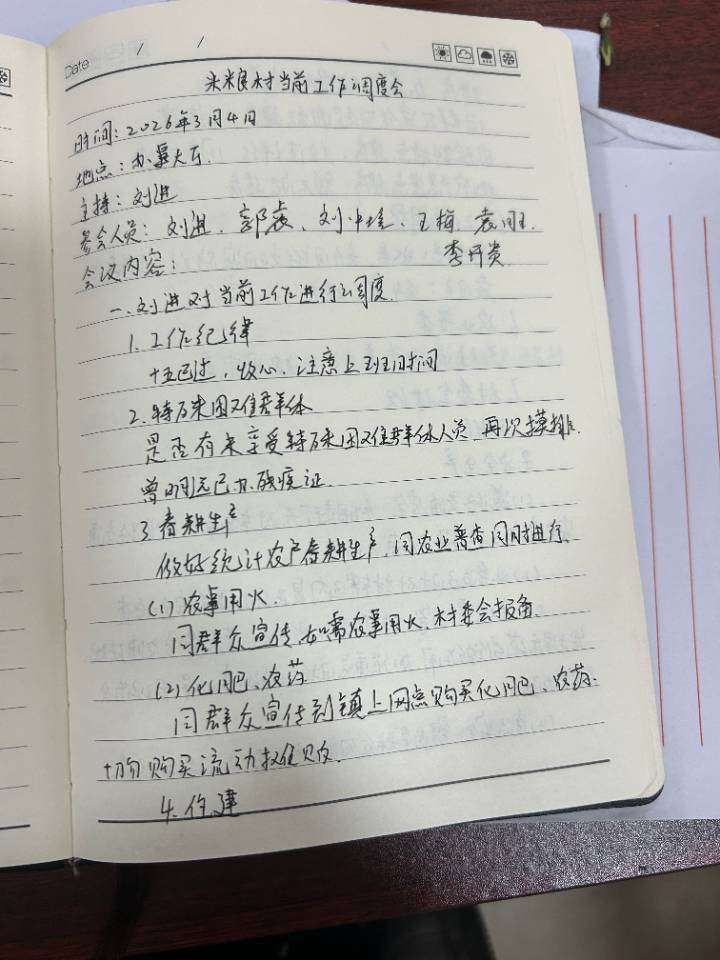 Date / /
米粮村当前工作调度会
时间：2026年3月4日
地点：办事大厅
主持：刘进
参会人员：刘进、郭 、刘中 、王梅、袁旺、
李开贵
会议内容：
一、刘进对当前工作进行调度
1. 工作纪律
十五已过，收心、注意上班时间
2. 特殊困难群体
是否有未享受特殊困难群体人员，再次摸排.
曾明远已办残疾证.
3 春耕生产
做好统计农户春耕生产，同农业普查同时进行.
(1) 农事用火.
同群众宣传，如需农事用火，村委会报备.
(2) 化肥、农药
同群众宣传到镇上网点购买化肥、农药.
切勿购买流动摊贩.
4. 作建